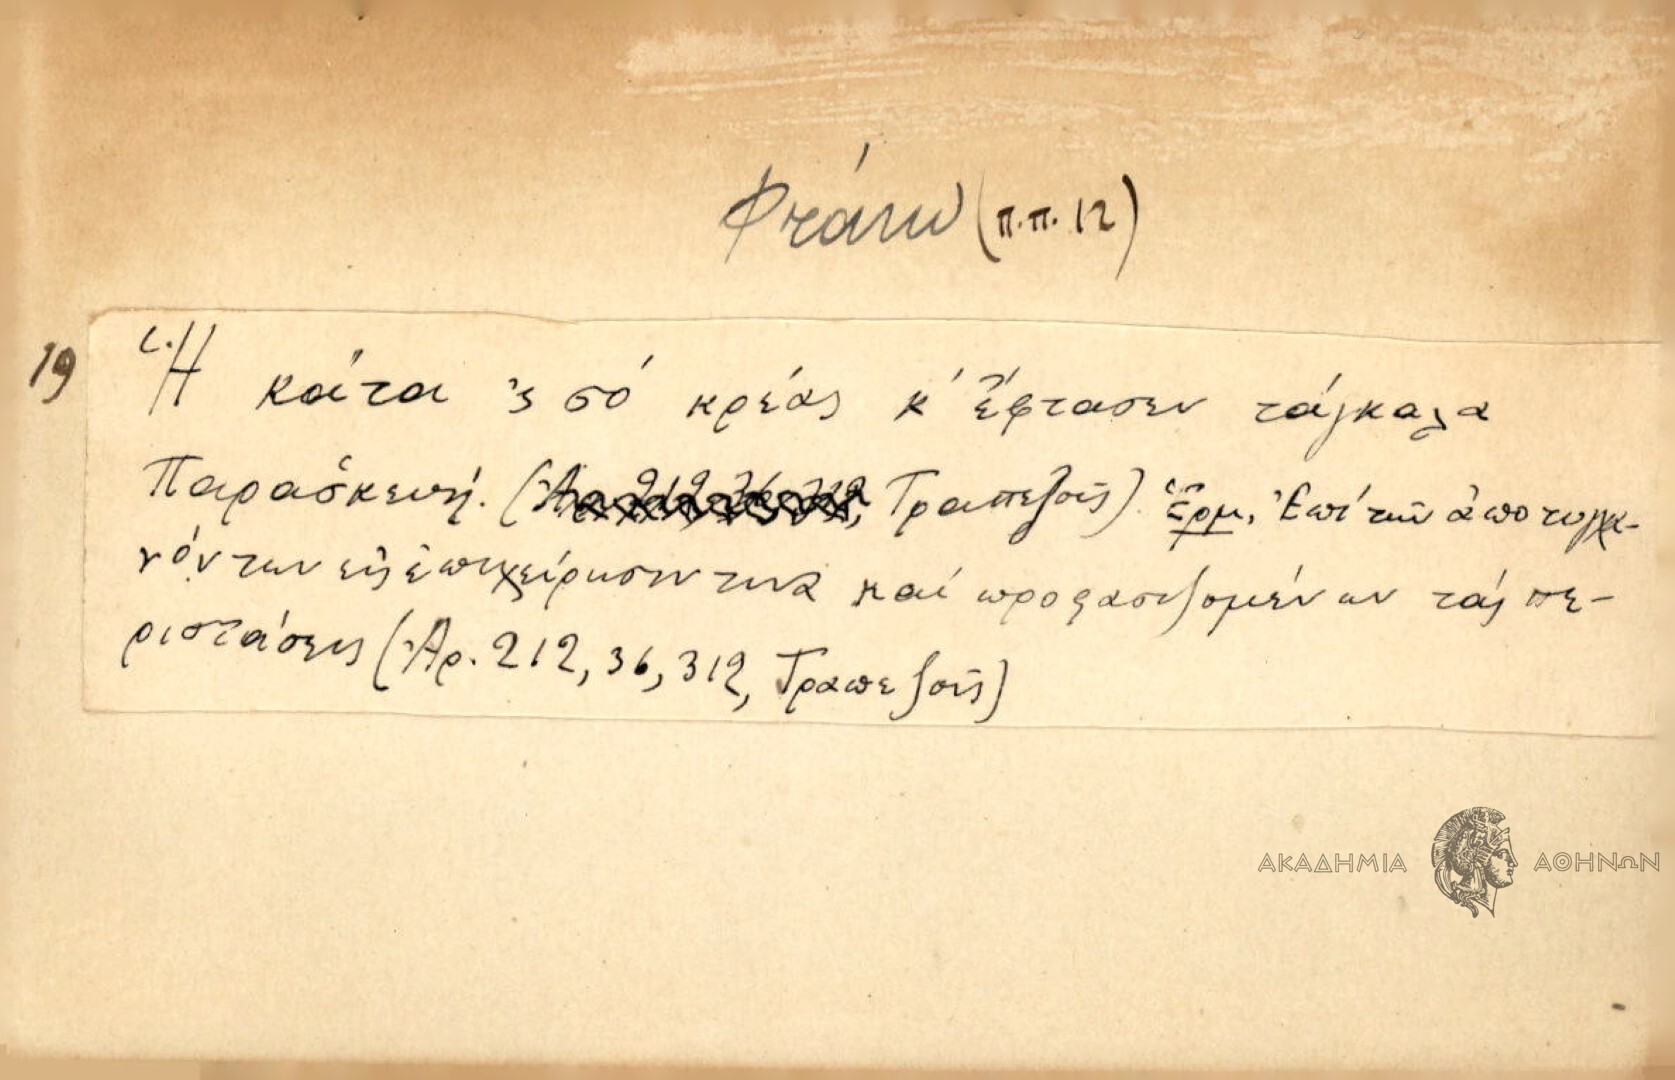 Φτάνω (π.π. 12)
19
Ἡ κάτα 'ς σό κρέας κ' ἔφτασεν τάγκαλα
Παρασκευή. (Ἀρ. 212, 36, 312, Τραπεζοῦς). Ἑρμ. Ἐπί τῶν ἀποτυγχα-
νόντων εἰς ἐπιχείρησιν τινα καί προφασιζομένων τάς πε-
ριστάσεις (Ἀρ. 212, 36, 312, Τραπεζοῦς)
ΑΚΑΔΗΜΙΑ ΑΘΗΝΩΝ